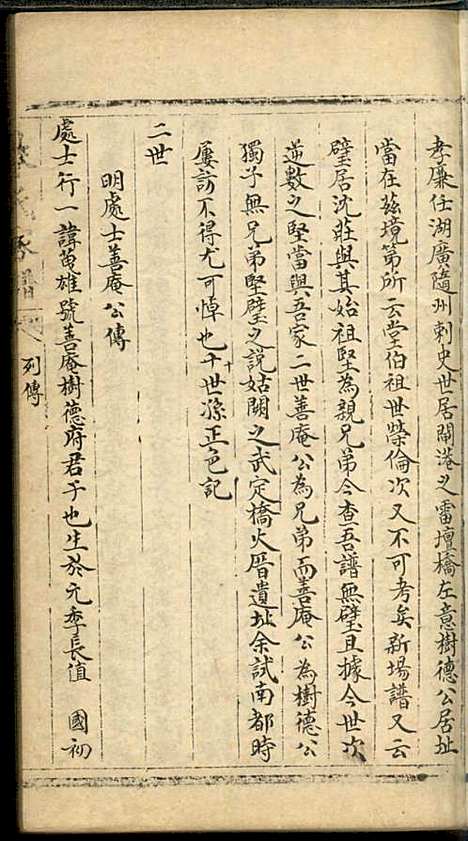 孝廉任湖廣隨州刺史世居閘港之雷壇橋左意樹德公居址
當在茲境第所云堂伯祖世榮倫次又不可考矣新場譜又云
璧居沈莊與其始祖堅為親兄弟今查吾譜無璧且據今世次
逆數之堅當與吾家二世善庵公為兄弟而善庵公為樹德公
獨子無兄弟堅璧之説姑闕之武定橋火厝遺址余試南都時
屢訪不得尤可悼也十世孫正色記
二世
明處士善庵公傳
處士行一諱雄號善庵樹德府君子也生於元季長值 國初
列傳